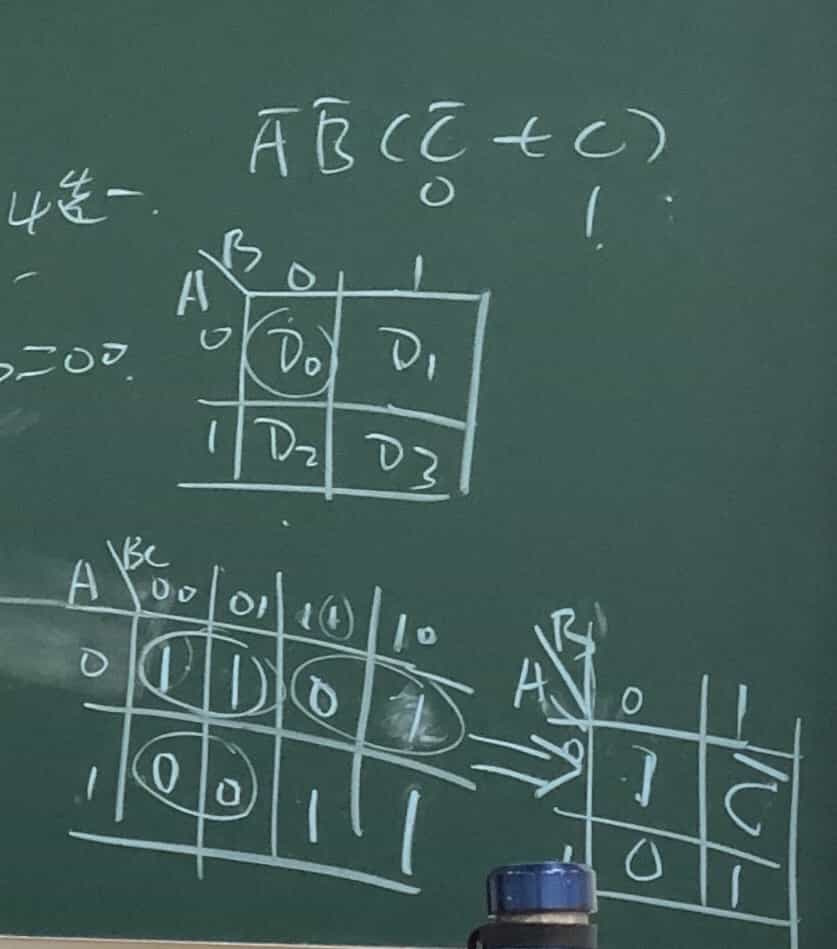 A̅ B̅ (C̅ + C)
0 1
4选一.
=00.
B
A 0 1
0 D₀ D₁
1 D₂ D3
A BC 00 01 11 10
0 1 1 0 1
1 0 0 1 1
⇒
B
A 0 1
0 1 C̅
1 0 1